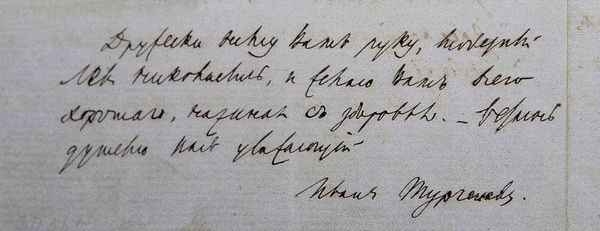 Дружески жму Вамъ руку, любезный
Левъ Николаевичъ, и желаю Вамъ всего
хорошаго, начиная съ здоровья. —
душевно Васъ уважающій
Иванъ Тургеневъ.